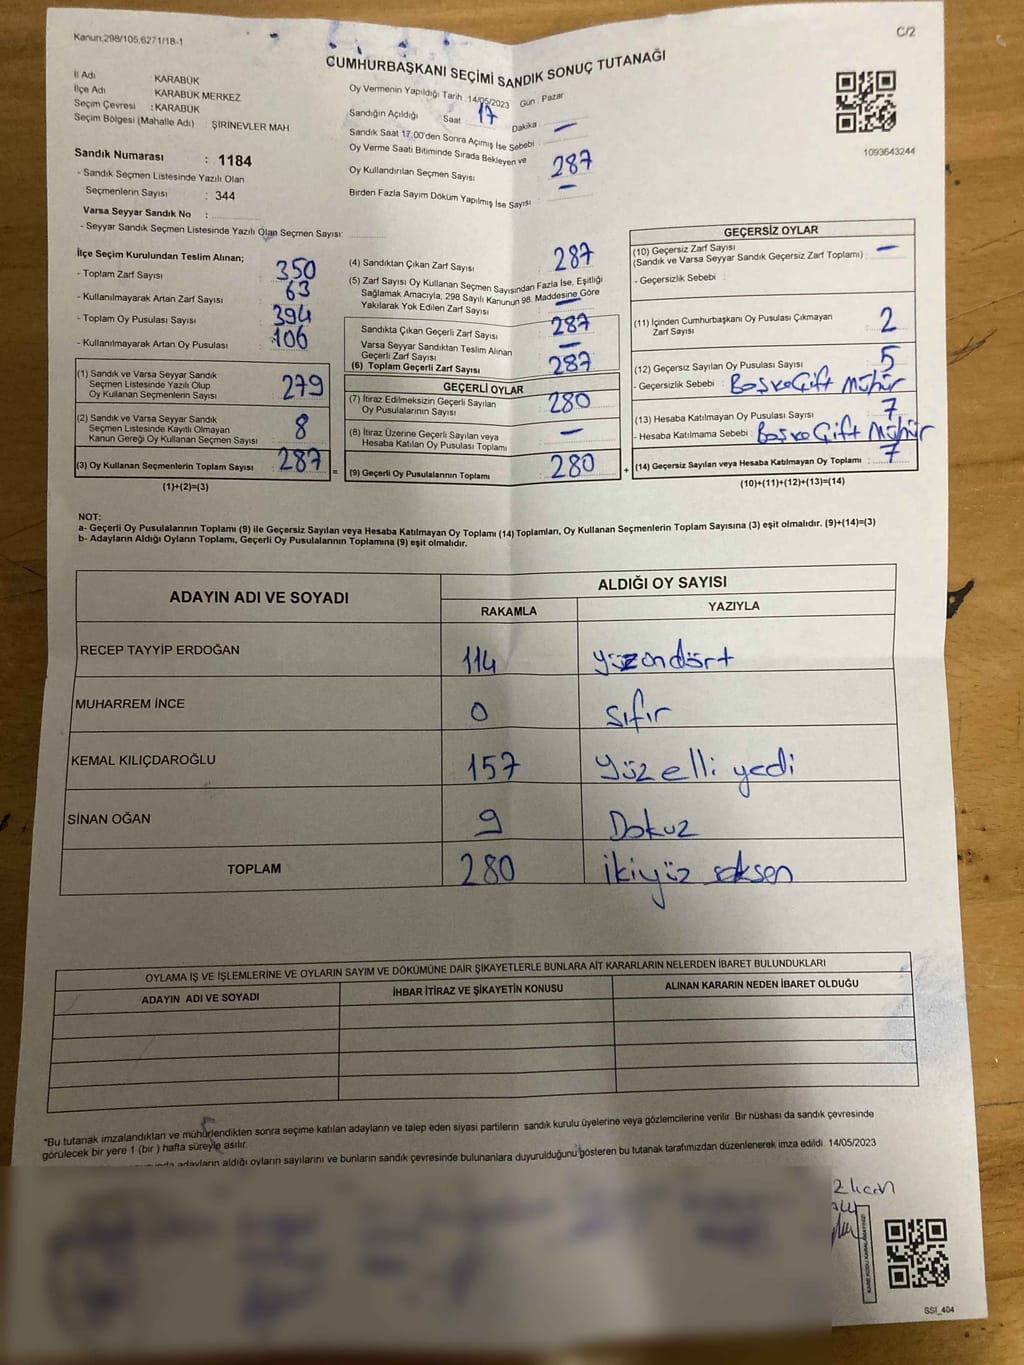 Kanun:298/105,6271/18-1
C/2
CUMHURBAŞKANI SEÇİMİ SANDIK SONUÇ TUTANAĞI
İl Adı KARABÜK
İlçe Adı KARABÜK MERKEZ
Seçim Çevresi : KARABÜK
Seçim Bölgesi (Mahalle Adı) : ŞİRİNEVLER MAH.
Sandık Numarası : 1184
- Sandık Seçmen Listesinde Yazılı Olan
Seçmenlerin Sayısı : 344
Varsa Seyyar Sandık No :
- Seyyar Sandık Seçmen Listesinde Yazılı Olan Seçmen Sayısı:
Oy Vermenin Yapıldığı Tarih 14/05/2023 Gün Pazar
Sandığın Açıldığı Saat 17 Dakika —
Sandık Saat 17.00'den Sonra Açımış İse Sebebi :
Oy Verme Saati Bitiminde Sırada Bekleyen ve
Oy Kullandırılan Seçmen Sayısı 287
Birden Fazla Sayım Döküm Yapılmış İse Sayısı : —
1093643244
İlçe Seçim Kurulundan Teslim Alınan;
- Toplam Zarf Sayısı : 350
- Kullanılmayarak Artan Zarf Sayısı : 63
- Toplam Oy Pusulası Sayısı : 394
- Kullanılmayarak Artan Oy Pusulası : 106
(1) Sandık ve Varsa Seyyar Sandık
Seçmen Listesinde Yazılı Olup
Oy Kullanan Seçmenlerin Sayısı 279
(2) Sandık ve Varsa Seyyar Sandık
Seçmen Listesinde Kayıtlı Olmayan
Kanun Gereği Oy Kullanan Seçmen Sayısı 8
(3) Oy Kullanan Seçmenlerin Toplam Sayısı 287 =
(1)+(2)=(3)
(4) Sandıktan Çıkan Zarf Sayısı : 287
(5) Zarf Sayısı Oy Kullanan Seçmen Sayısından Fazla İse, Eşitliği
Sağlamak Amacıyla, 298 Sayılı Kanunun 98. Maddesine Göre
Yakılarak Yok Edilen Zarf Sayısı : —
Sandıkta Çıkan Geçerli Zarf Sayısı 287
Varsa Seyyar Sandıktan Teslim Alınan
Geçerli Zarf Sayısı —
(6) Toplam Geçerli Zarf Sayısı 287
GEÇERLİ OYLAR
(7) İtiraz Edilmeksizin Geçerli Sayılan
Oy Pusulalarının Sayısı 280
(8) İtiraz Üzerine Geçerli Sayılan veya
Hesaba Katılan Oy Pusulası Toplamı —
(9) Geçerli Oy Pusulalarının Toplamı 280 +
GEÇERSİZ OYLAR
(10) Geçersiz Zarf Sayısı
(Sandık ve Varsa Seyyar Sandık Geçersiz Zarf Toplamı) : —
- Geçersizlik Sebebi :
(11) İçinden Cumhurbaşkanı Oy Pusulası Çıkmayan
Zarf Sayısı 2
(12) Geçersiz Sayılan Oy Pusulası Sayısı : 5
- Geçersizlik Sebebi : Boş ve Çift Mühür
(13) Hesaba Katılmayan Oy Pusulası Sayısı : 7
- Hesaba Katılmama Sebebi : Boş ve Çift Mühür
(14) Geçersiz Sayılan veya Hesaba Katılmayan Oy Toplamı : 7
(10)+(11)+(12)+(13)=(14)
NOT:
a- Geçerli Oy Pusulalarının Toplamı (9) ile Geçersiz Sayılan veya Hesaba Katılmayan Oy Toplamı (14) Toplamları, Oy Kullanan Seçmenlerin Toplam Sayısına (3) eşit olmalıdır. (9)+(14)=(3)
b- Adayların Aldığı Oyların Toplamı, Geçerli Oy Pusulalarının Toplamına (9) eşit olmalıdır.
ADAYIN ADI VE SOYADI
ALDIĞI OY SAYISI
RAKAMLA YAZIYLA
RECEP TAYYİP ERDOĞAN 114 yüzondört
MUHARREM İNCE 0 sıfır
KEMAL KILIÇDAROĞLU 157 Yüz elli yedi
SİNAN OĞAN 9 Dokuz
TOPLAM 280 ikiyüz seksen
OYLAMA İŞ VE İŞLEMLERİNE VE OYLARIN SAYIM VE DÖKÜMÜNE DAİR ŞİKAYETLERLE BUNLARA AİT KARARLARIN NELERDEN İBARET BULUNDUKLARI
ADAYIN ADI VE SOYADI İHBAR İTİRAZ VE ŞİKAYETİN KONUSU ALINAN KARARIN NEDEN İBARET OLDUĞU
*Bu tutanak imzalandıktan ve mühürlendikten sonra seçime katılan adayların ve talep eden siyasi partilerin sandık kurulu üyelerine veya gözlemcilerine verilir. Bir nüshası da sandık çevresinde
görülecek bir yere 1 (bir) hafta süreyle asılır.
adayların aldığı oyların sayılarını ve bunların sandık çevresinde bulunanlara duyurulduğunu gösteren bu tutanak tarafımızdan düzenlenerek imza edildi. 14/05/2023
KARE KODU KARALAMAYINIZ!
SSI_404